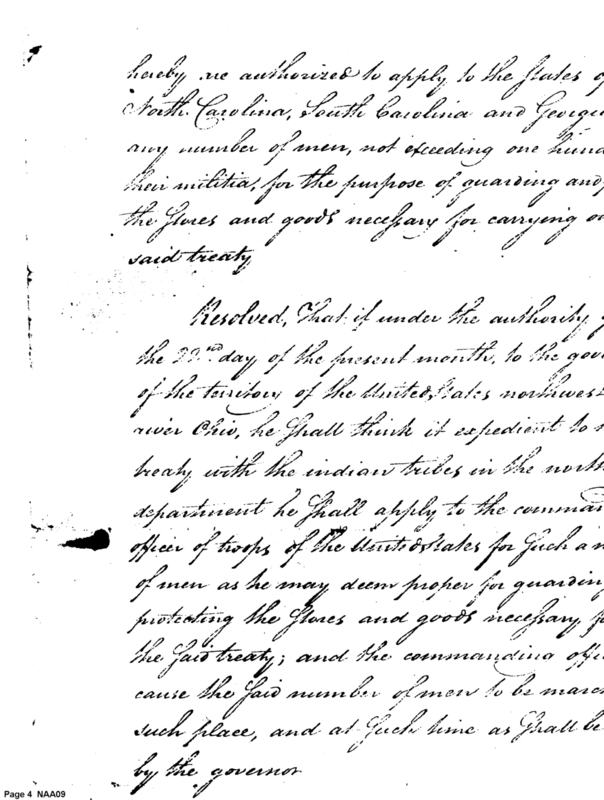 hereby are authorized to apply to the States of
North Carolina, South Carolina and Georgia
any number of men, not exceeding one hund
their militia, for the purpose of guarding and
the stores and goods necessary for carrying on
said treaty
Resolved, That if under the authority
the 22nd day of the present month, to the gov
of the territory of the United States northwest
river Ohio, he shall think it expedient to
treaty with the indian tribes in the north
department he shall apply to the comman
officer of troops of the United States for such a
of men as he may deem proper for guarding
protecting the stores and goods necessary f
the said treaty; and the commanding offi
cause the said number of men to be marc
such place, and at such time as shall be
by the governor
Page 4 NAA09